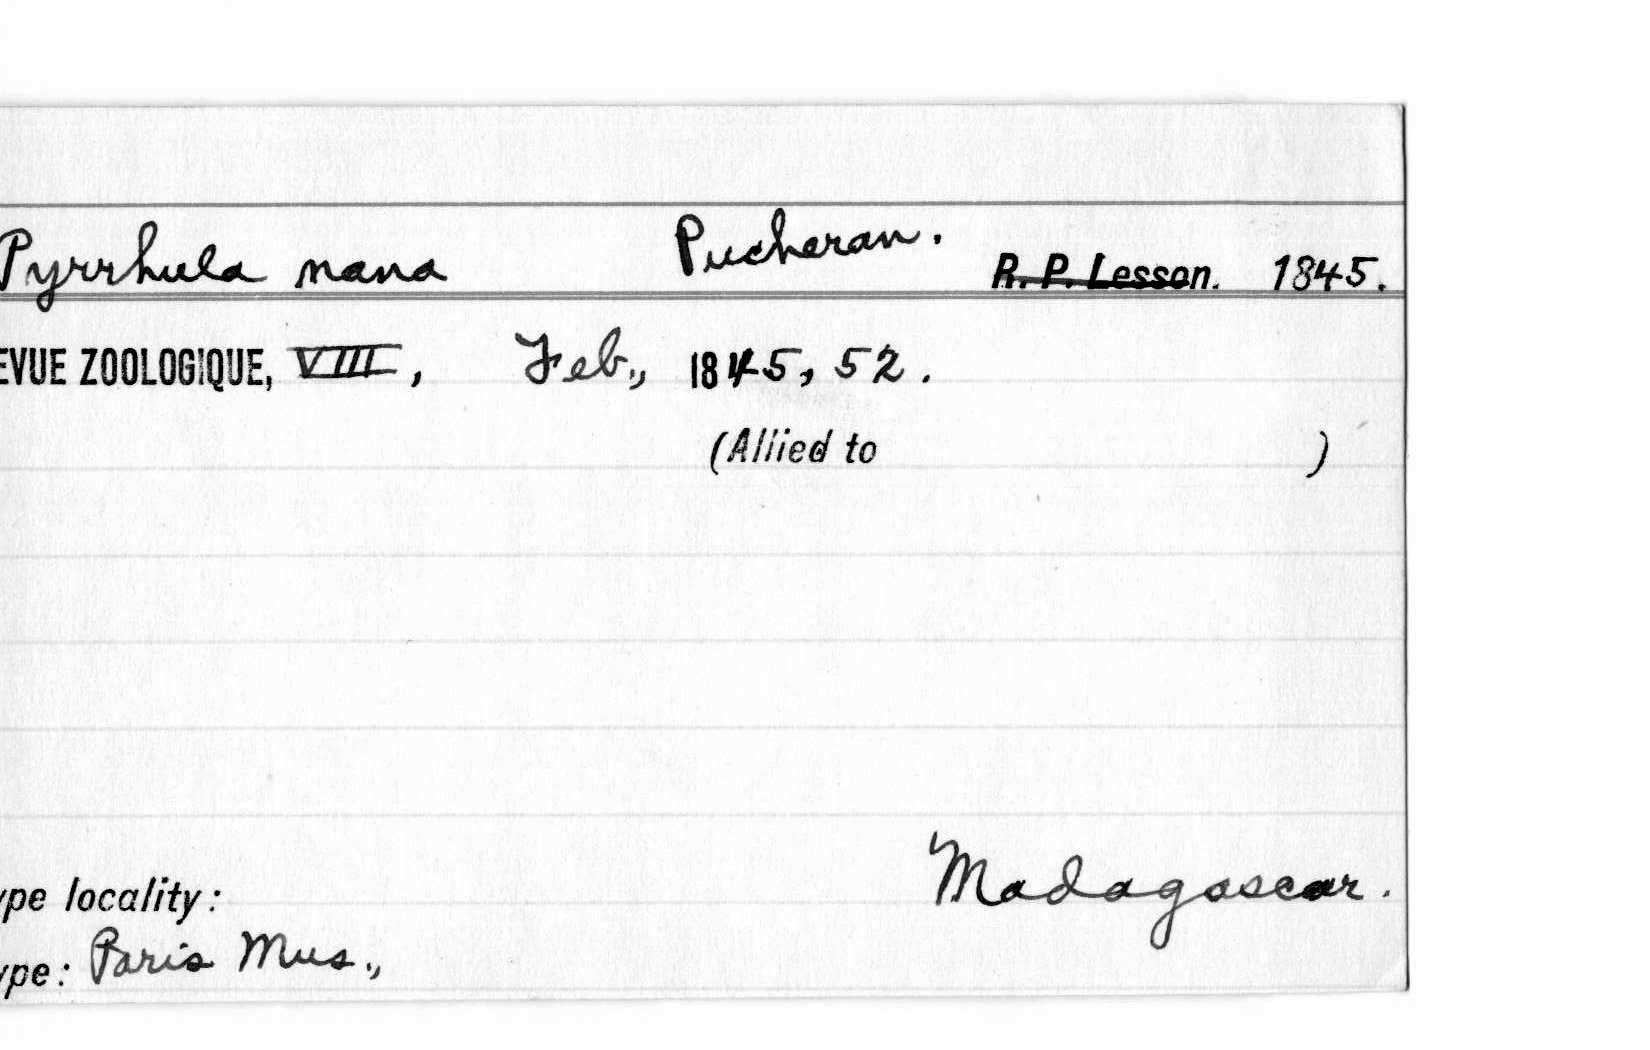 Pyrrhula nana Pucheran. R. P. Lesson. 1845.
EVUE ZOOLOGIQUE, VIII, Feb., 1845, 52.
(Allied to )
ype locality: Madagascar.
ype: Paris Mus.,